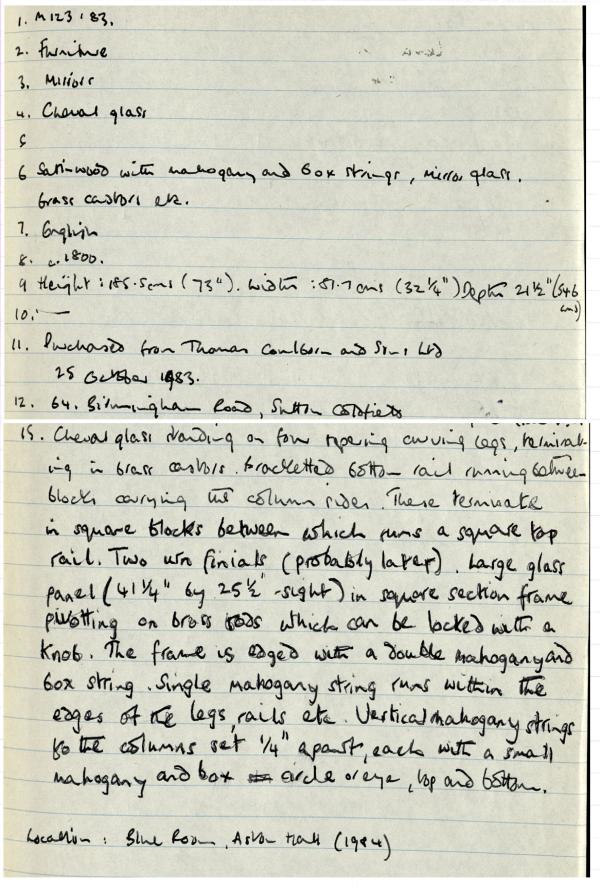 1. M123'83.
2. Furniture
3. Mirrors
4. Cheval glass
5
6 Satin-wood with mahogany and box strings, mirror glass.
brass castors etc.
7. English
8. c.1800.
9 Height : 185.5cms (73"). Width : 81.7 cms (32 1/4") Depth 21 1/2" (546
cms)
10. —
11. Purchased from Thomas Coulborn and Sons Ltd
25 October 1983.
12. 64. Birmingham Road, Sutton Coldfield
15. Cheval glass standing on four tapering curving legs, terminat-
ing in brass castors. Bracketted bottom rail running between
blocks carrying the column sides. These terminate
in square blocks between which runs a square top
rail. Two urn finials (probably later). Large glass
panel (41 1/4" by 25 1/2" - sight) in square section frame
pivotting on brass rods which can be locked with a
knob. The frame is edged with a double mahogany and
box string. Single mahogany string runs within the
edges of the legs, rails etc. Vertical mahogany strings
to the columns set 1/4" apart, each with a small
mahogany and box circle or eye, top and bottom.
Location : Blue Room, Aston Hall (1984)